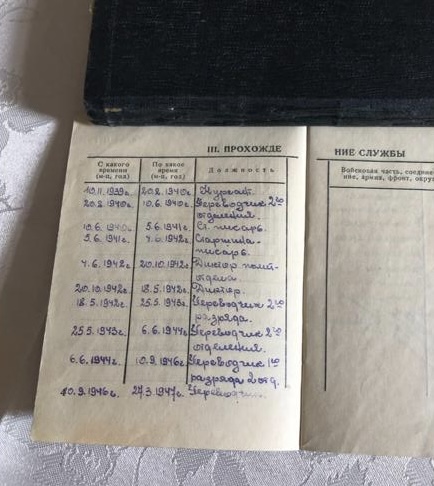 III. ПРОХОЖДЕ
НИЕ СЛУЖБЫ
С какого времени (м-ц, год)
По какое время (м-ц, год)
Должность
Войсковая часть, соедине-
ние, армия, фронт, округ
10.11.1939г. 20.2.1940г. Курсант.
20.2.1940г. 10.6.1940г. Переводчик 2го
отделения.
10.6.1940г. 5.6.1941г. Ст. писарь.
5.6.1941г. 4.6.1942г. Старшина-
писарь.
4.6.1942г. 20.10.1942г. Диктор полит-
отдела
20.10.1942г. 18.5.1942г. Диктор.
18.5.1942г. 25.5.1943г. Переводчик 2го
разряда.
25.5.1943г. 6.6.1944г. Переводчик 2го
отделения.
6.6.1944г. 10.9.1946г. Переводчик 1го
разряда 2 отд.
10.9.1946г. 27.3.1947г. Переводчик.